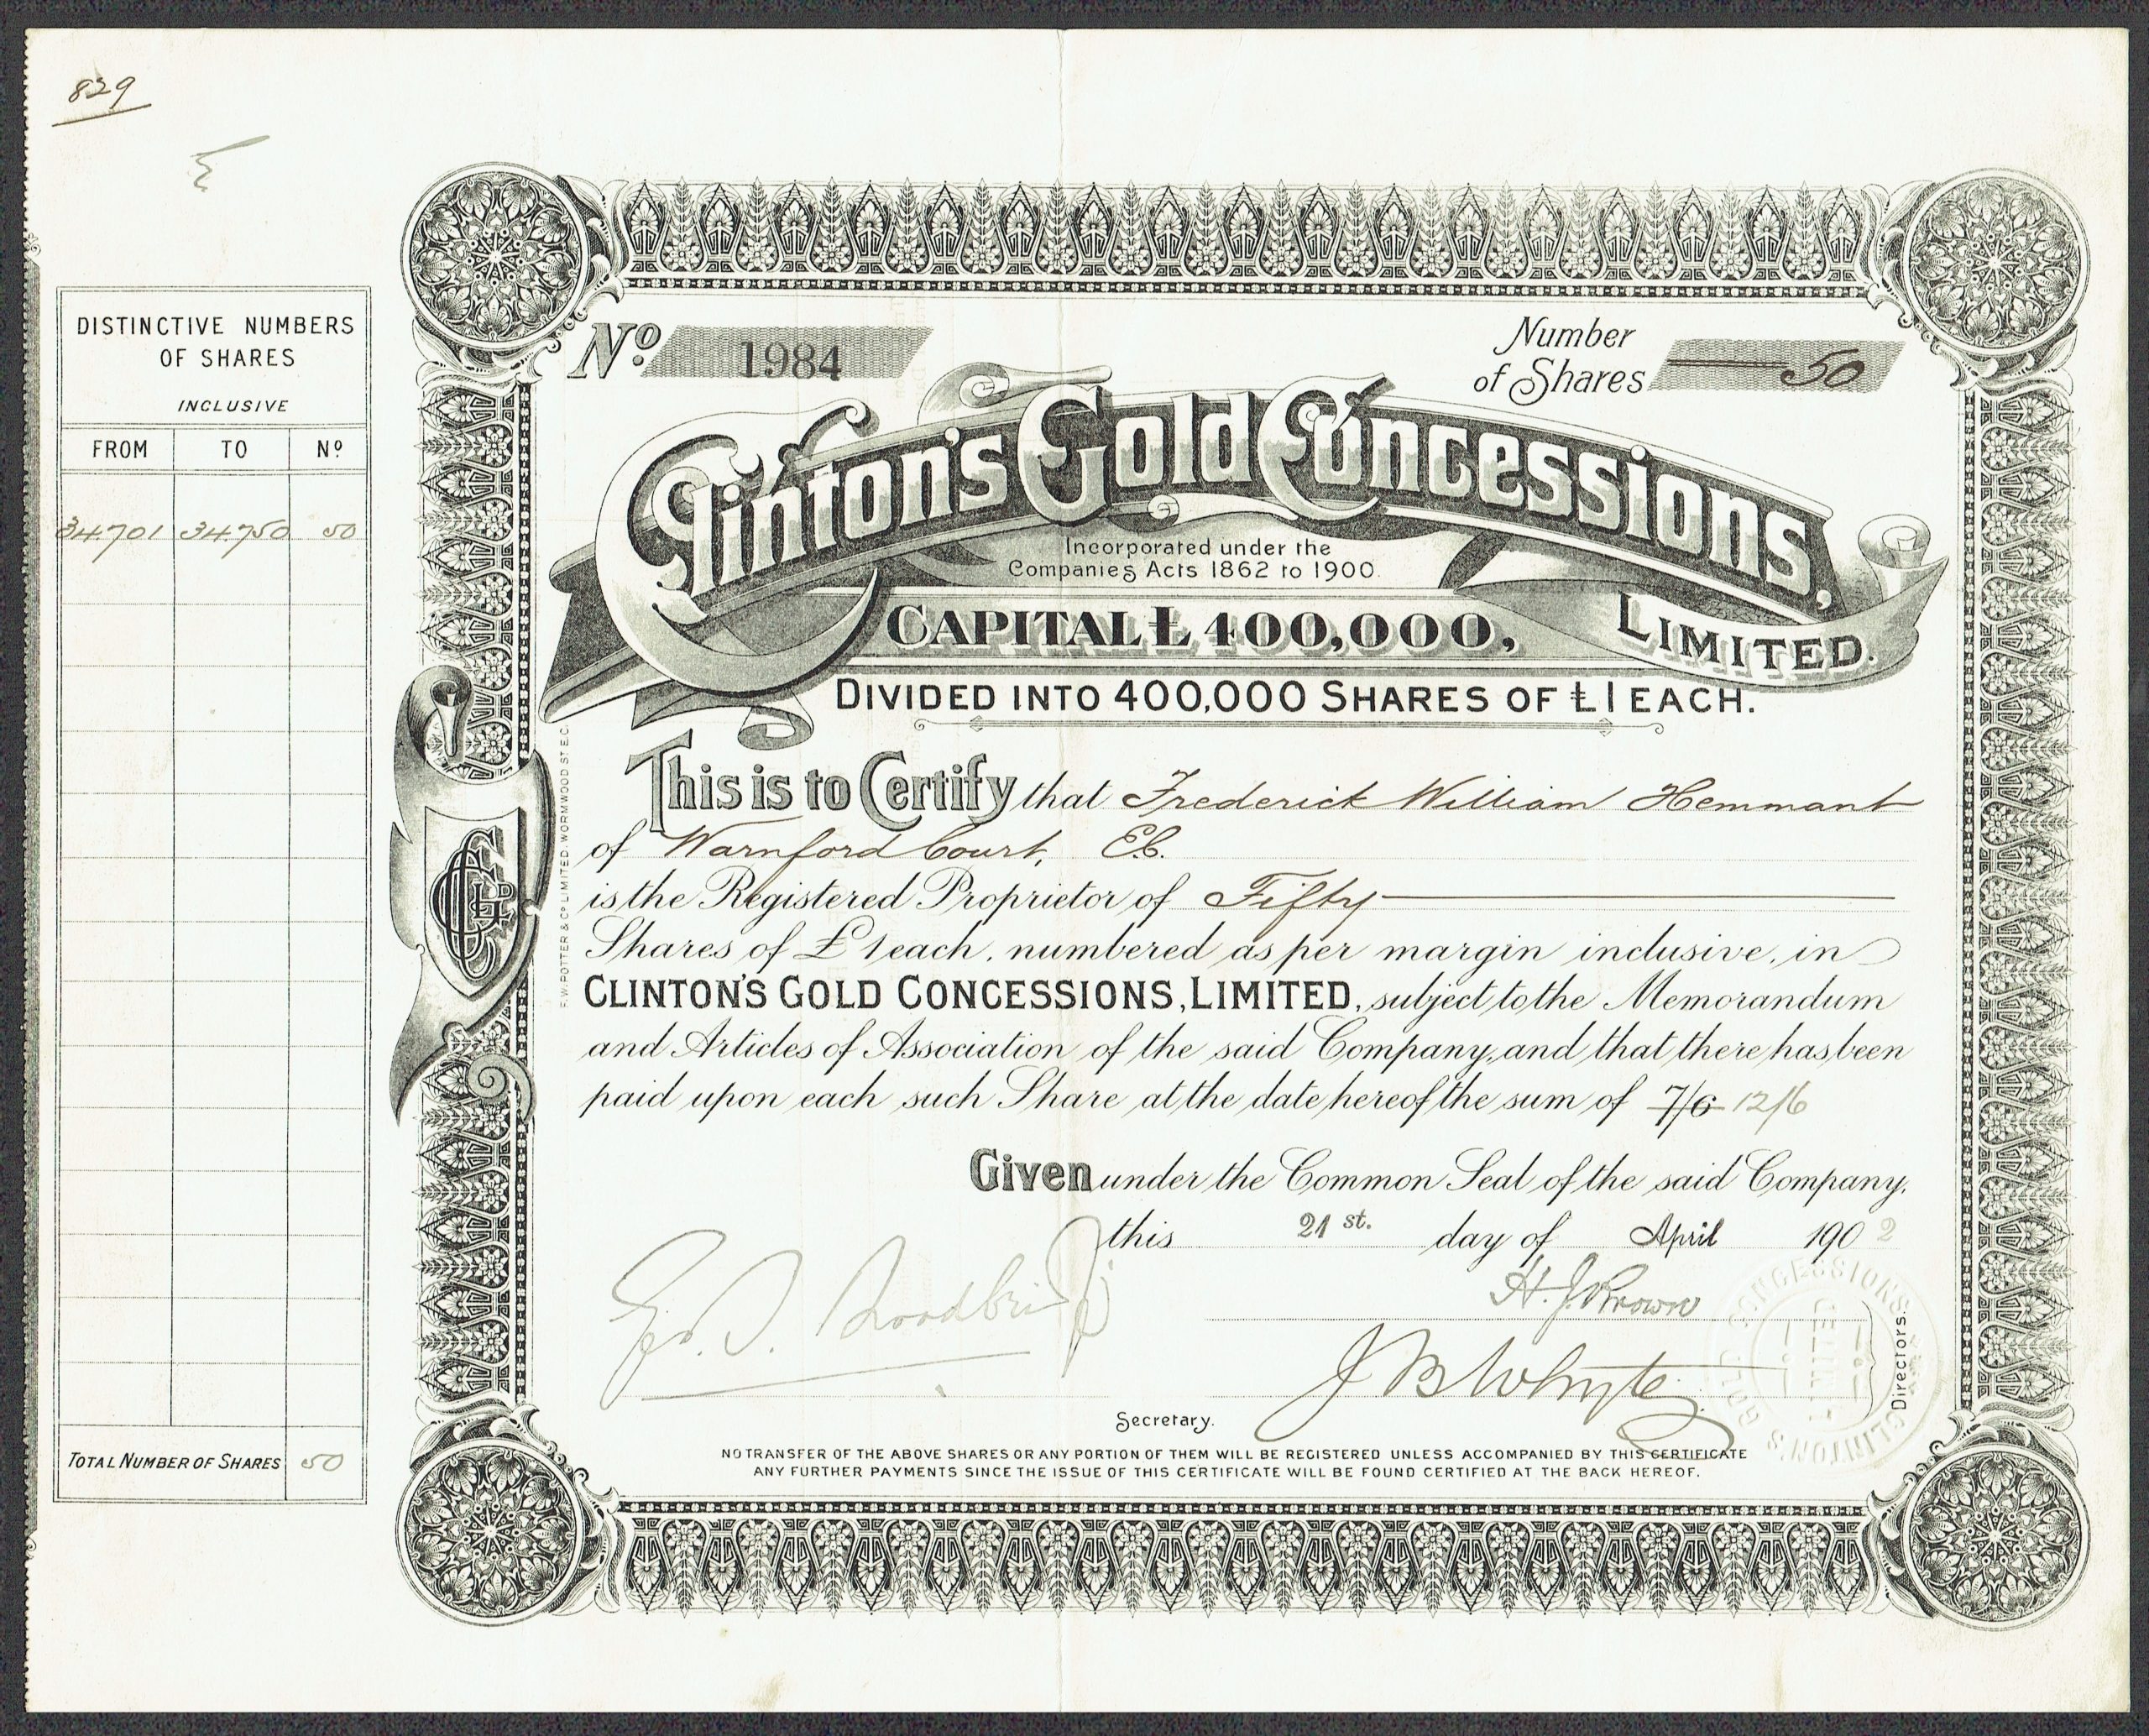 829
DISTINCTIVE NUMBERS
OF SHARES
INCLUSIVE
FROM TO Nº
34701 34750 50
TOTAL NUMBER OF SHARES 50
Nº 1984
Number
of Shares 50
Clinton's Gold Concessions,
LIMITED.
Incorporated under the
Companies Acts 1862 to 1900.
CAPITAL £400,000,
DIVIDED INTO 400,000 SHARES OF £1 EACH.
This is to Certify that Frederick William Hemmant
of Warnford Court, E.C.
is the Registered Proprietor of Fifty
Shares of £1 each, numbered as per margin inclusive, in
CLINTON'S GOLD CONCESSIONS, LIMITED, subject to the Memorandum
and Articles of Association of the said Company, and that there has been
paid upon each such Share at the date hereof the sum of 7/6 12/6
Given under the Common Seal of the said Company,
this 21st. day of April 1902
H. J. Brown
J B Whyte
Directors.
Secretary.
NO TRANSFER OF THE ABOVE SHARES OR ANY PORTION OF THEM WILL BE REGISTERED UNLESS ACCOMPANIED BY THIS CERTIFICATE
ANY FURTHER PAYMENTS SINCE THE ISSUE OF THIS CERTIFICATE WILL BE FOUND CERTIFIED AT THE BACK HEREOF.
F. W. POTTER & Cº LIMITED. WORMWOOD ST E.C.
CLINTON'S GOLD CONCESSIONS
LIMITED